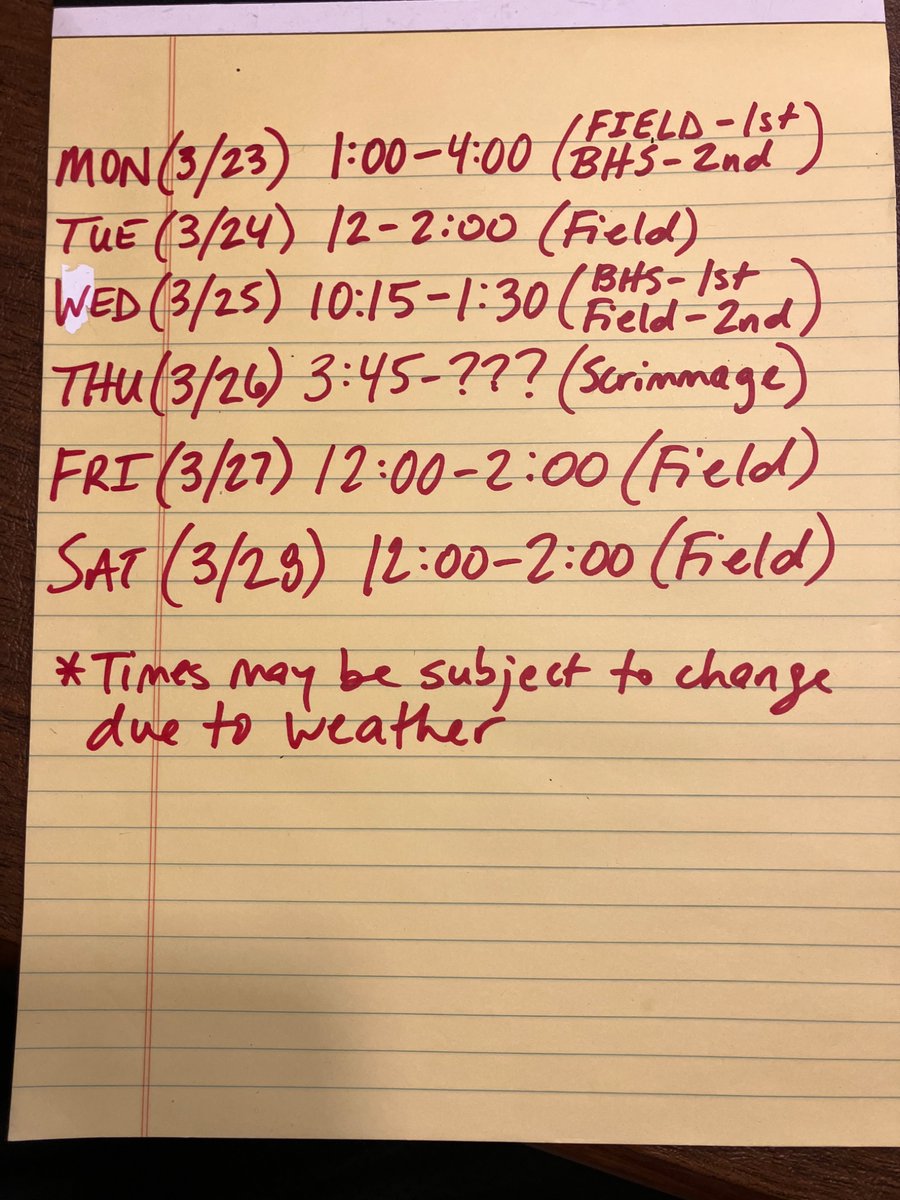 MON (3/23) 1:00-4:00 (FIELD-1st
BHS-2nd)
TUE (3/24) 12-2:00 (Field)
WED (3/25) 10:15-1:30 (BHS-1st
Field-2nd)
THU (3/26) 3:45-??? (Scrimmage)
FRI (3/27) 12:00-2:00 (Field)
SAT (3/28) 12:00-2:00 (Field)
*Times may be subject to change
due to weather